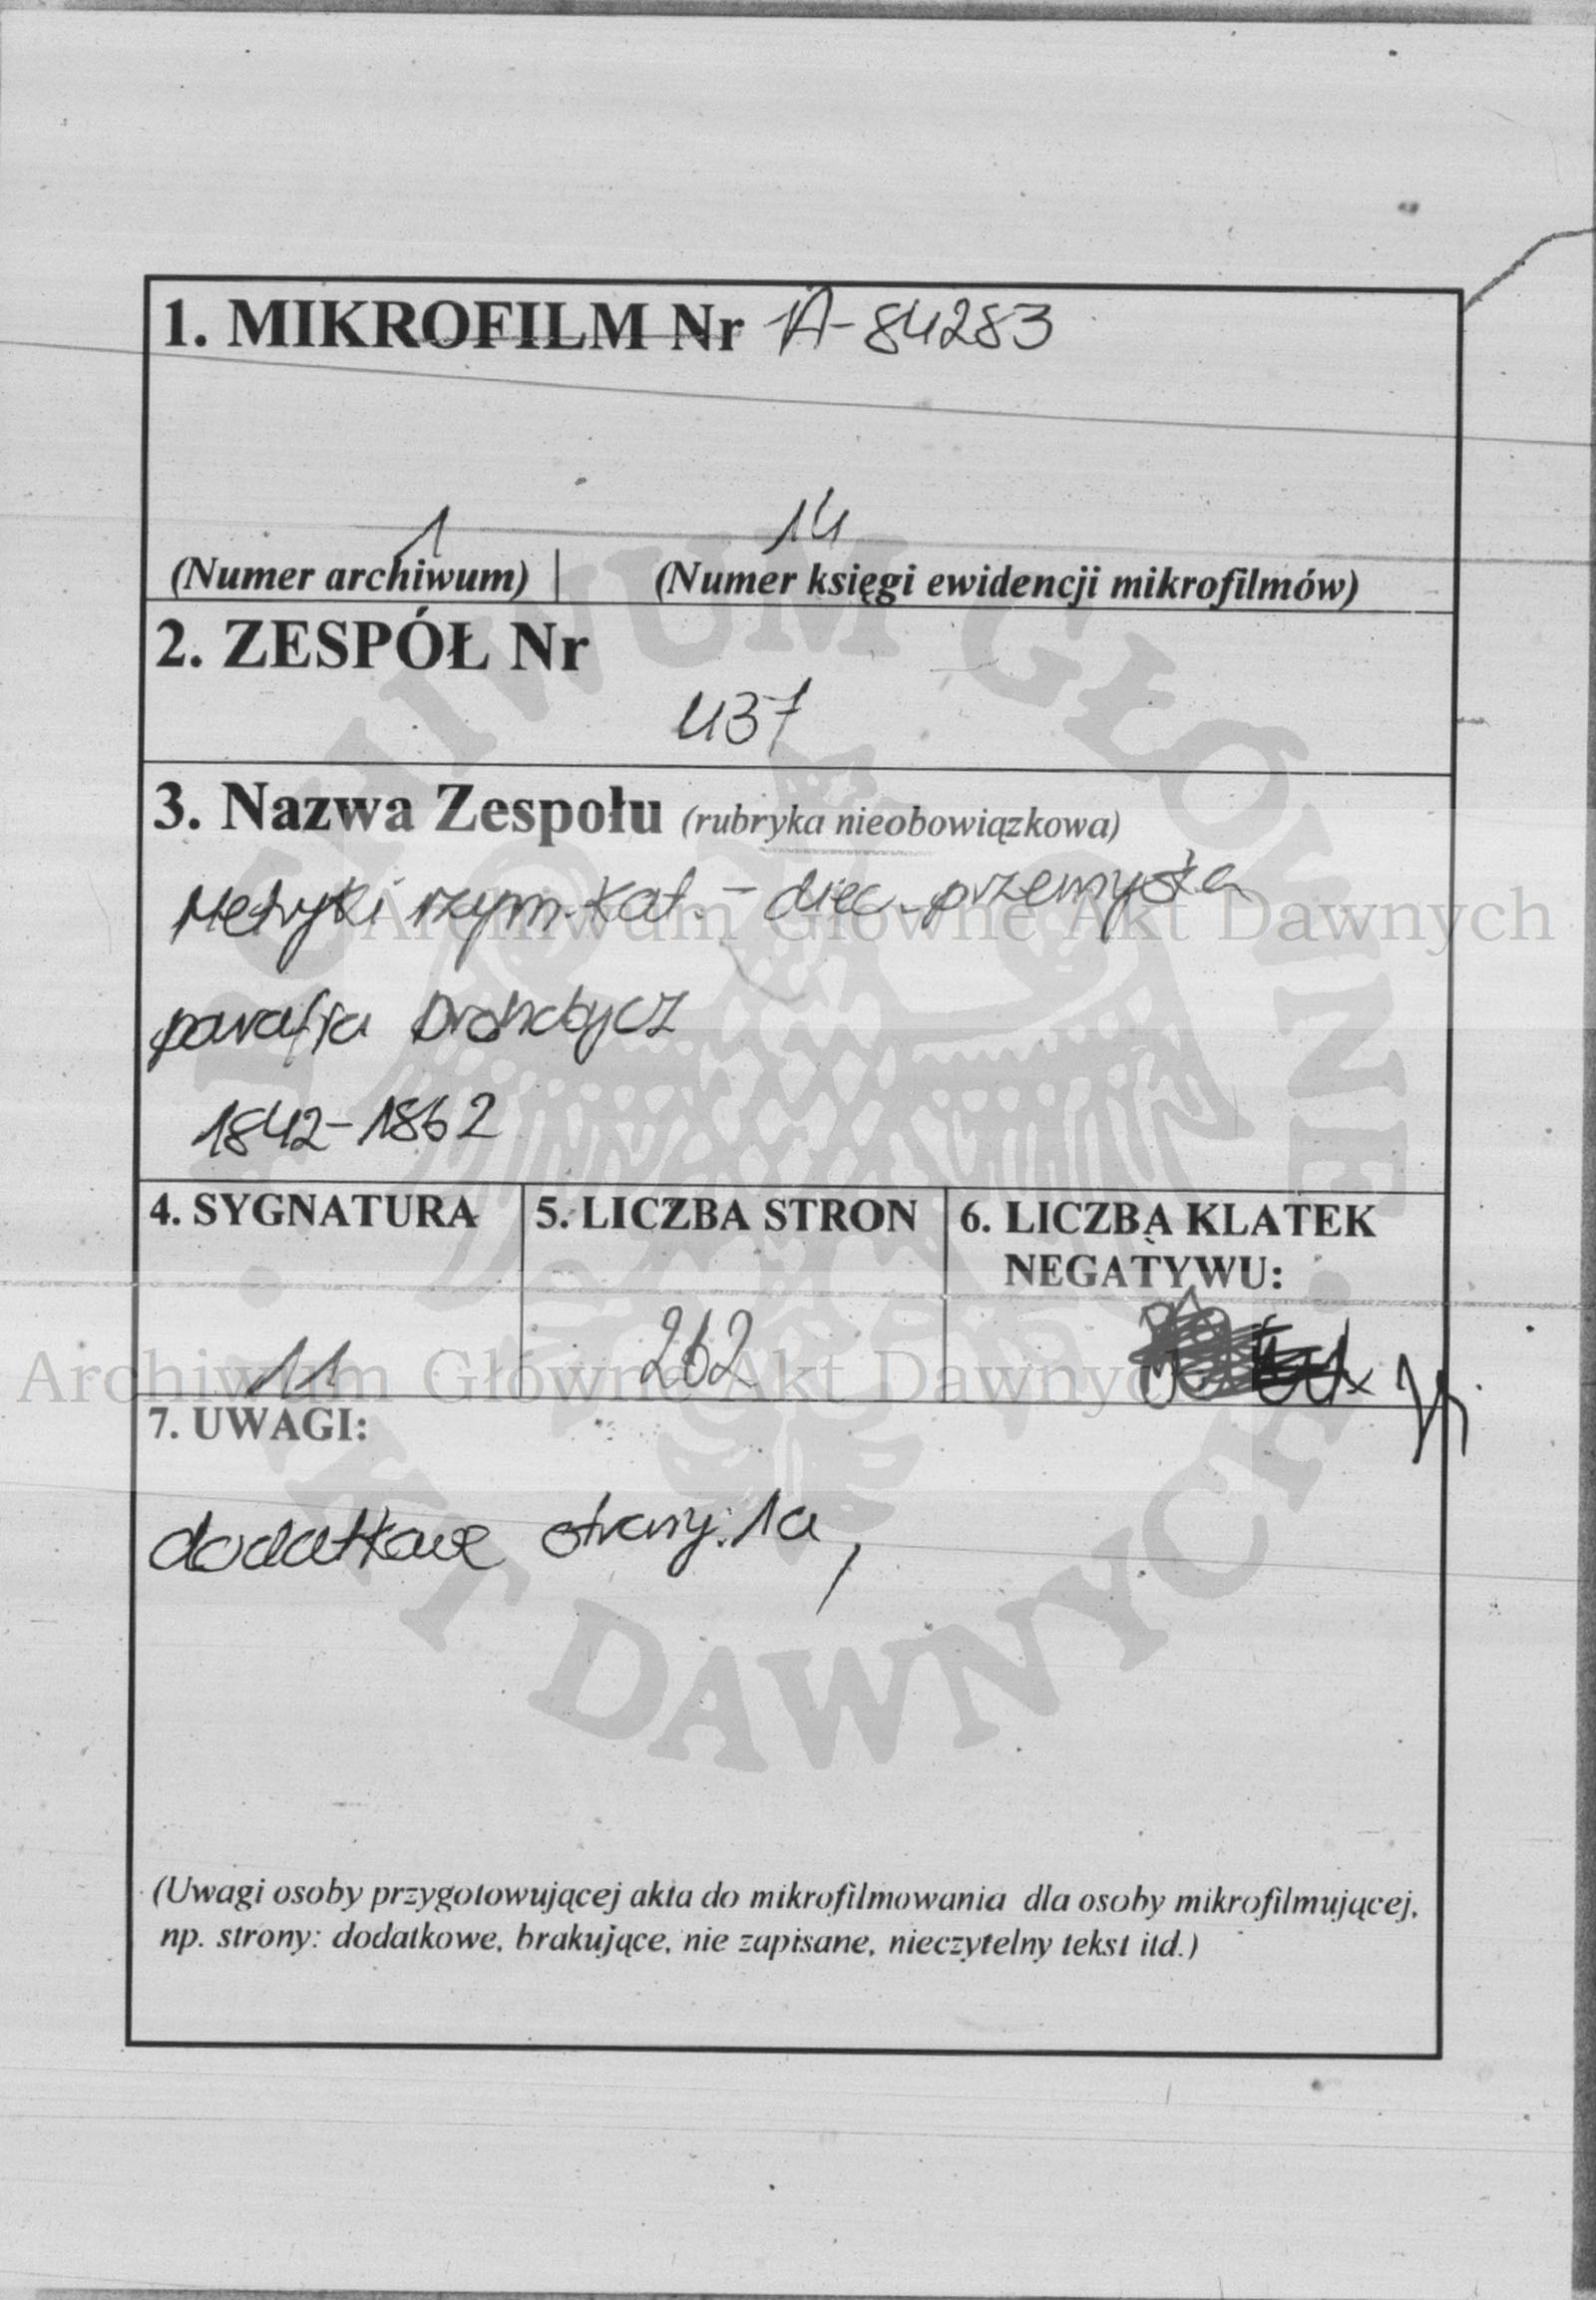 1. MIKROFILM Nr A-84283
1 14
(Numer archiwum) (Numer księgi ewidencji mikrofilmów)
2. ZESPÓŁ Nr
437
3. Nazwa Zespołu (rubryka nieobowiązkowa)
Metryki rzym.kat. - diec. przemyska
Archiwum Główne Akt Dawnych
parafia Drohobycz
1842-1862
4. SYGNATURA 5. LICZBA STRON 6. LICZBA KLATEK
NEGATYWU:
11 262
Archiwum Główne Akt Dawnych
7. UWAGI:
dodatkowe strony: 1a,
ARCHIWUM GŁÓWNE AKT DAWNYCH
(Uwagi osoby przygotowującej akta do mikrofilmowania dla osoby mikrofilmującej,
np. strony: dodatkowe, brakujące, nie zapisane, nieczytelny tekst itd.)